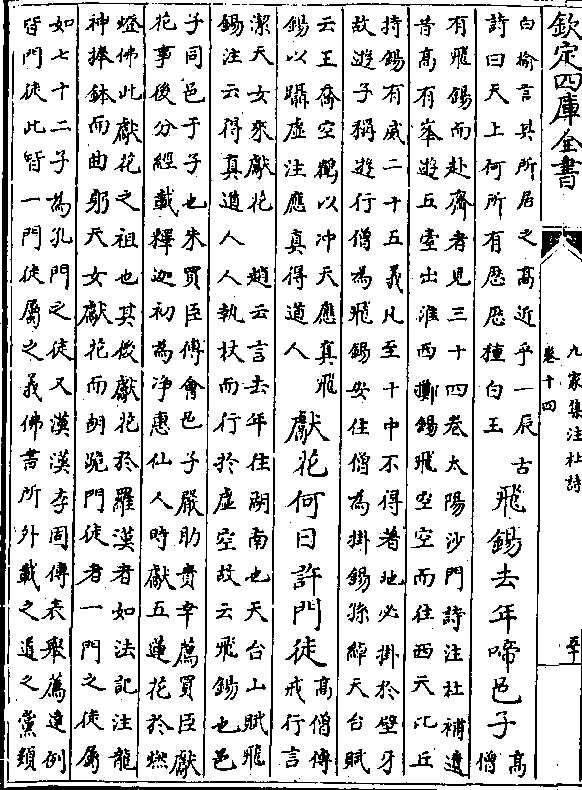 欽定四庫全書
九家集注杜詩
卷十四
白榆言其所居之高近乎一辰古
詩曰天上何所有歷歷種白玉
飛錫去年啼邑子
高
僧
有飛錫而赴齋者見三十四卷太陽沙門詩注杜補遺
昔高有峯遊五臺出淮西擲錫飛空空而往西天比丘
持錫有威二十五義凡至十中不得著地必掛於壁牙
故遊子稱遊行僧為飛錫安住僧為掛錫孫綽天台賦
云王喬空鶴以冲天應真飛
錫以躡虛注應真得道人
獻花何日許門徒
高僧傳
戒行言
潔天女來獻花　趙云言去年往湖南也天台山賦飛
錫注云得真道人人執杖而行於虛空故云飛錫也邑
子同邑于子也朱買臣傳會邑子嚴助貴幸薦買臣獻
花事後分經載釋迦初為净惠仙人時獻五蓮花於燃
燈佛此獻花之祖也其後獻花於羅漢者如法記注龍
神捧鉢而曲躬天女獻花而跪門徒者一門之徒屬
如七十二子為孔門之徒又漢漢李固傳表舉薦達例
皆門徒此皆一門徒屬之義佛書所外載之道之黨類